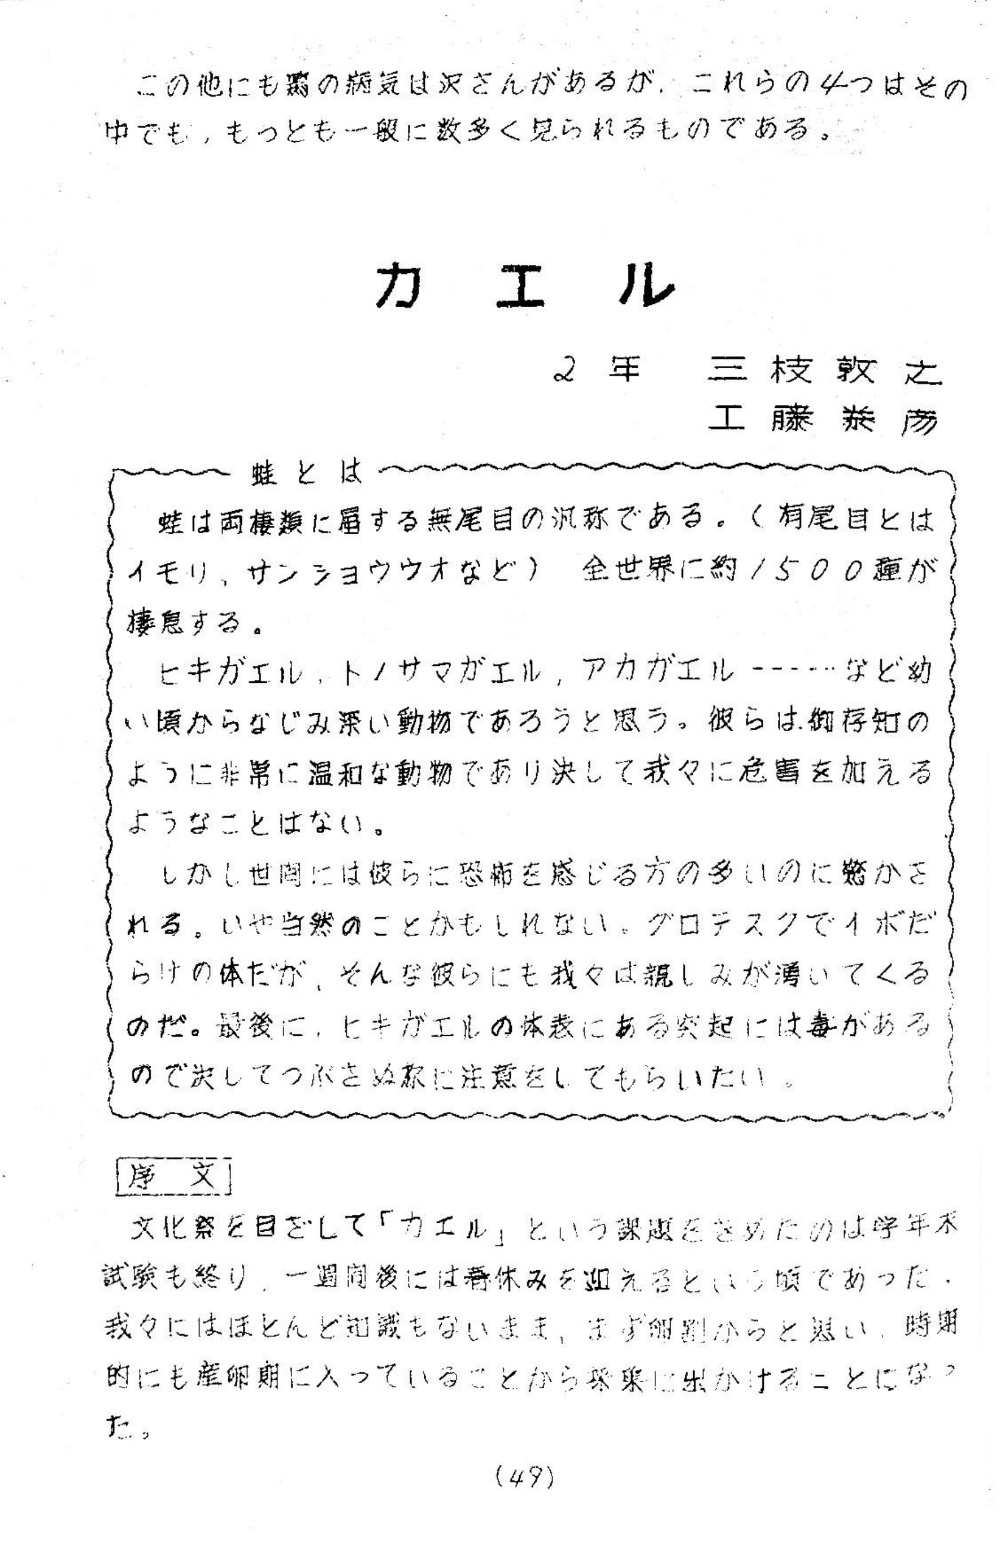 この他にも鶏の病気は沢さんがあるが、これらの4つはその
中でも,もっとも一般に数多く見られるものである。
カエル
2年 三枝敦之
工藤恭彦
蛙とは
蛙は両棲類に属する無尾目の汎称である。(有尾目とは
イモリ、サンショウウオなど) 全世界に約1500種が
棲息する。
ヒキガエル、トノサマガエル,アカガエル------など幼
い頃からなじみ深い動物であろうと思う。彼らは御存知の
ように非常に温和な動物であり決して我々に危害を加える
ようなことはない。
しかし世間には彼らに恐怖を感じる方の多いのに驚かさ
れる。いや当然のことかもしれない。グロテスクでイボだ
らけの体だが、そんな彼らにも我々は親しみが湧いてくる
のだ。最後に、ヒキガエルの体表にある突起には毒がある
ので決してつぶさぬ様に注意をしてもらいたい。
序文
文化祭を目ざして「カエル」という課題をきめたのは学年末
試験も終り、一週間後には春休みを迎えるという頃であった。
我々にはほとんど知識もないまま、まず解剖からと思い、時期
的にも産卵期に入っていることから採集に出かけることになっ
た。
(49)